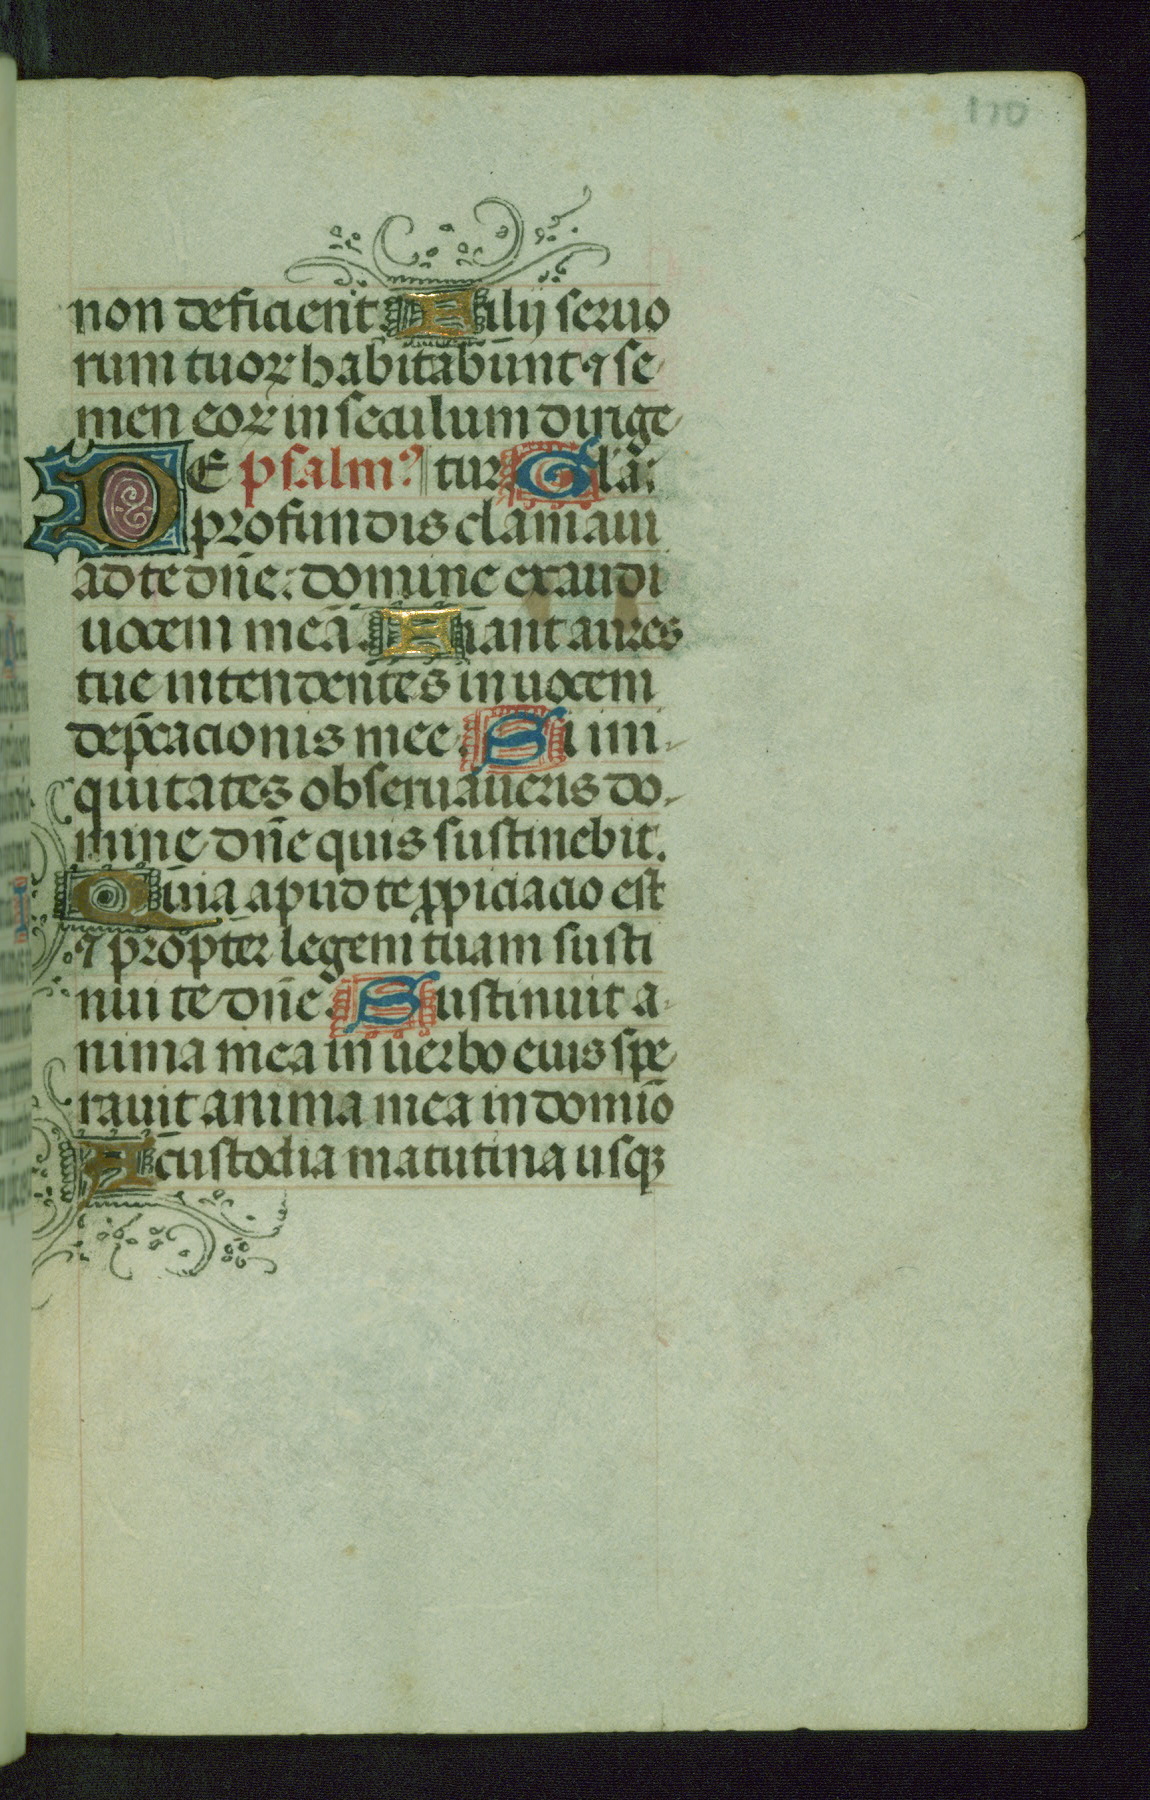 170
non deficient Filij seruo
rum tuoꝝ habitabunt ⁊ se
men eoꝝ in seculum dirige
DE psalmꝰ tur Glã:
profundis clamaui
ad te dñe: domine exaudi
uocem meã. Fiant aures
tue intendentes in uocem
dep̃cacionis mee. Si ini-
quitates obseruaueris do-
mine dñe quis sustinebit.
Quia apud te ꝓpiciacio est
⁊ propter legem tuam susti
nui te dñe. Sustinuit a-
nima mea in uerbo eius spe
rauit anima mea in domĩo
A custodia matutina usqꝫ